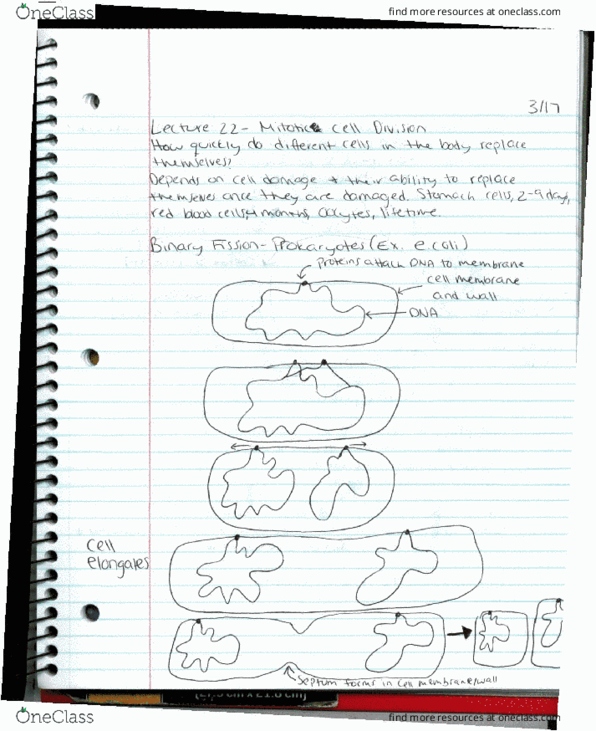 OneClass
find more resources at oneclass.com
3/17
Lecture 22- Mitotic cell Division
How quickly do different cells in the body replace
themselves?
Depends on cell damage + their ability to replace
themselves once they are damaged. Stomach cells, 2-9 days,
red blood cells, 4 months, Oocytes, lifetime.
Binary Fission- Prokaryotes (Ex. e coli)
Proteins attack DNA to membrane
cell membrane
and wall
DNA
cell
elongates
Septum forms in cell membrane/wall
OneClass
find more resources at oneclass.com